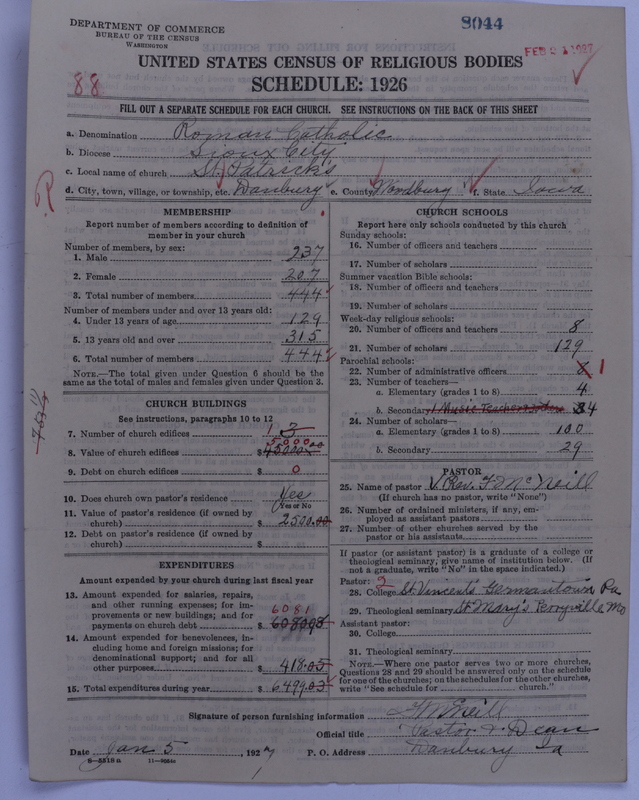 8044
DEPARTMENT OF COMMERCE
BUREAU OF THE CENSUS
WASHINGTON
FEB 2 1927
UNITED STATES CENSUS OF RELIGIOUS BODIES
SCHEDULE: 1926
88
FILL OUT A SEPARATE SCHEDULE FOR EACH CHURCH. SEE INSTRUCTIONS ON THE BACK OF THIS SHEET
a. Denomination Roman Catholic
b. Diocese Sioux City
c. Local name of church St. Patricks
d. City, town, village, or township, etc. Danbury e. County Woodbury f. State Iowa
MEMBERSHIP
Report number of members according to definition of
member in your church
Number of members, by sex:
1. Male 237
2. Female 207
3. Total number of members 444
Number of members under and over 13 years old:
4. Under 13 years of age 129
5. 13 years old and over 315
6. Total number of members 444
NOTE.—The total given under Question 6 should be the
same as the total of males and females given under Question 3.
CHURCH BUILDINGS
See instructions, paragraphs 10 to 12
7. Number of church edifices 1 3
8. Value of church edifices $ 45000.00
9. Debt on church edifices $ 0
10. Does church own pastor's residence Yes
Yes or No
11. Value of pastor's residence (if owned by
church) $ 2500.00
12. Debt on pastor's residence (if owned by
church) $
EXPENDITURES
Amount expended by your church during last fiscal year
13. Amount expended for salaries, repairs,
and other running expenses; for im-
provements or new buildings; and for
6081
payments on church debt $
14. Amount expended for benevolences, in-
cluding home and foreign missions; for
denominational support; and for all
other purposes $ 418.05
15. Total expenditures during year $ 6499.03
CHURCH SCHOOLS
Report here only schools conducted by this church
Sunday schools:
16. Number of officers and teachers
17. Number of scholars
Summer vacation Bible schools:
18. Number of officers and teachers
19. Number of scholars
Week-day religious schools:
20. Number of officers and teachers 8
21. Number of scholars 129
Parochial schools:
22. Number of administrative officers 1
23. Number of teachers—
a. Elementary (grades 1 to 8) 4
b. Secondary 1 Music Teacher 4
24. Number of scholars—
a. Elementary (grades 1 to 8) 100
b. Secondary 29
PASTOR
25. Name of pastor V. Rev. F McNeill
(If church has no pastor, write "None")
26. Number of ordained ministers, if any, em-
ployed as assistant pastors
27. Number of other churches served by the
pastor or his assistants
If pastor (or assistant pastor) is a graduate of a college or
theological seminary, give name of institution below. (If
not a graduate, write "No" in the space indicated.)
Pastor: 2
28. College St. Vincents Germantown Pa
29. Theological seminary St Mary's Perryville Mo
Assistant pastor:
30. College
31. Theological seminary
NOTE.—Where one pastor serves two or more churches,
Questions 28 and 29 should be answered only on the schedule
for one of the churches; on the schedules for the other churches,
write "See schedule for church."
Signature of person furnishing information F McNeill
Official title Pastor & Dean
Date Jan 5 1927 P. O. Address Danbury Ia
8-3318 a 11-9064a